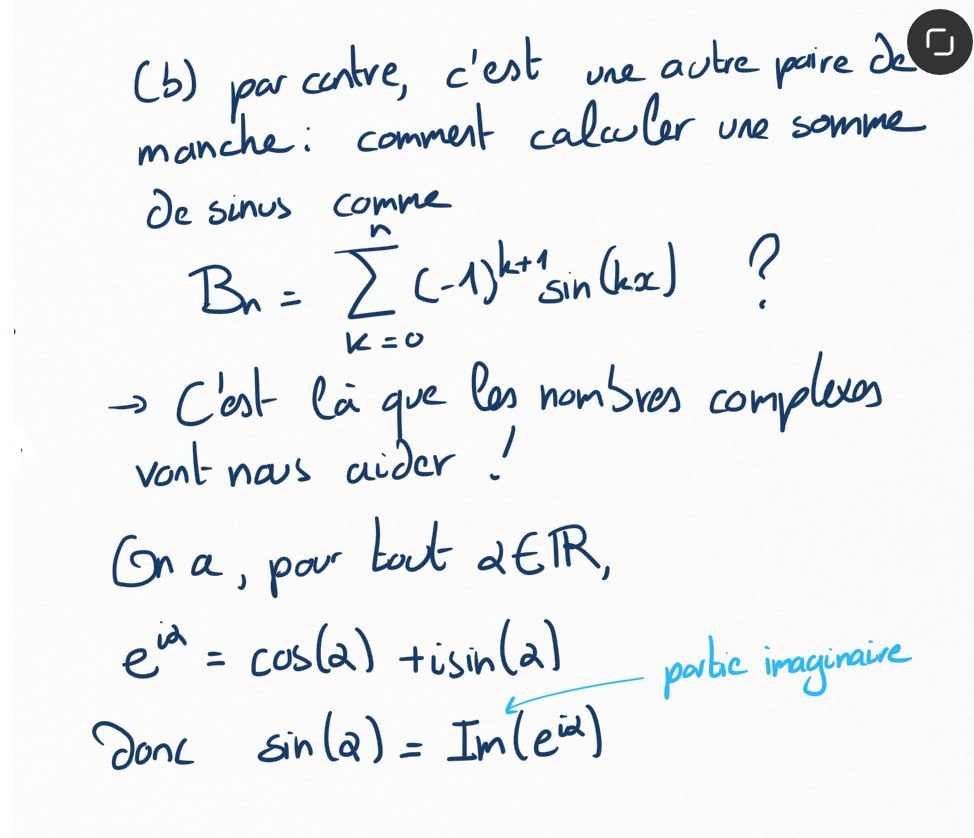 (b) par contre, c'est une autre paire de
manche : comment calculer une somme
de sinus comme
Bn = ∑_{k=0}^{n} (-1)^{k+1} sin(kx) ?
→ C'est là que les nombres complexes
vont nous aider !
On a, pour tout α∈ℝ,
e^{iα} = cos(α) + isin(α)
partie imaginaire
Donc sin(α) = Im(e^{iα})